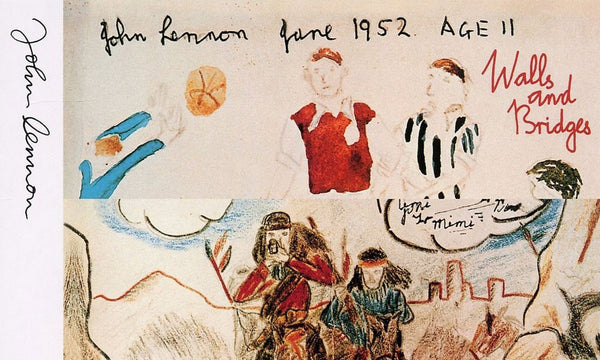 John Lennon
John Lennon June 1952. AGE 11
Walls
and
Bridges
to mimi